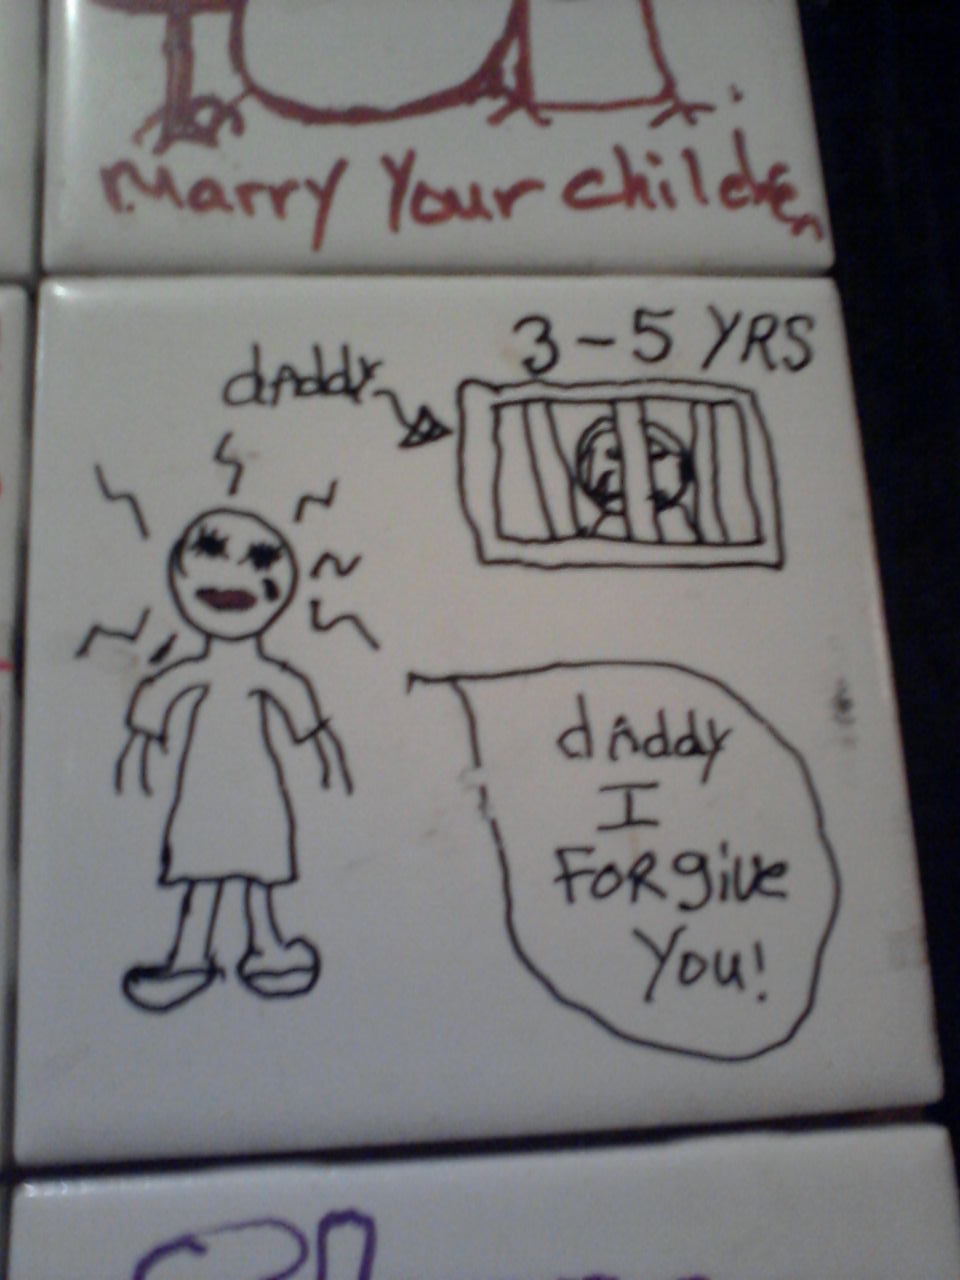 Marry Your children
3-5 YRS
dAddy
dAddy
I
FORgive
You!